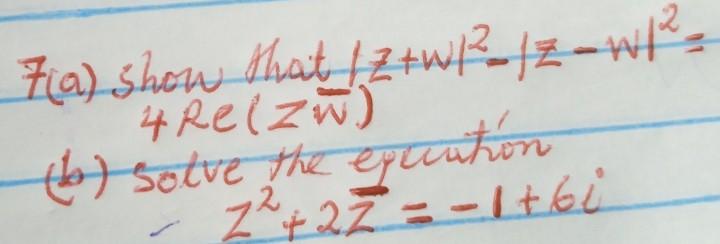 7(a) Show that |Z+W|²-|Z-W|²=
4 Re(Z W̅)
(b) Solve the equation
Z²+2Z̅ = -1+6i